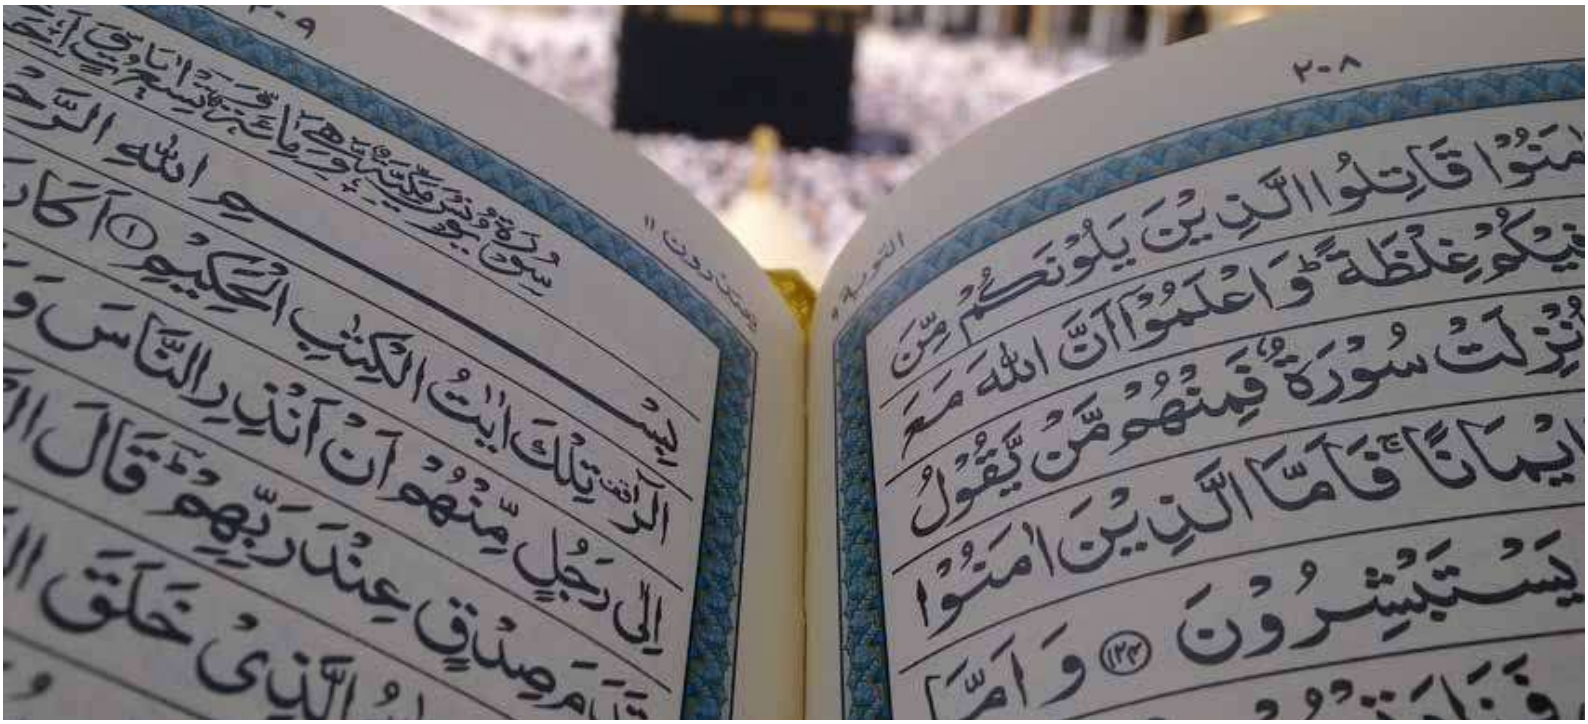 ٢٠٨
التوبة ٩
اٰمَنُوْا قَاتِلُوا الَّذِيْنَ يَلُوْنَكُمْ مِّنَ
فِيْكُمْ غِلْظَةً ؕ وَاعْلَمُوْۤا اَنَّ اللّٰهَ مَعَ
اُنْزِلَتْ سُوْرَةٌ فَمِنْهُمْ مَّنْ يَّقُوْلُ
اِيْمَانًا ۚ فَاَمَّا الَّذِيْنَ اٰمَنُوْا
يَسْتَبْشِرُوْنَ ﴿١٢٤﴾ وَاَمَّا
٢٠٩
يعتذرون ١١
سُوْرَةُ يُوْنُسَ مَكِّيَّةٌ وَّهِيَ مِائَةٌ
بِسْمِ اللّٰهِ
الٓرٰ تِلْكَ اٰيٰتُ الْكِتٰبِ الْحَكِيْمِ ﴿١﴾ اَكَانَ
اِلٰى رَجُلٍ مِّنْهُمْ اَنْ اَنْذِرِ النَّاسَ وَ
قَدَمَ صِدْقٍ عِنْدَ رَبِّهِمْ ؕ قَالَ
اللّٰهُ الَّذِيْ خَلَقَ